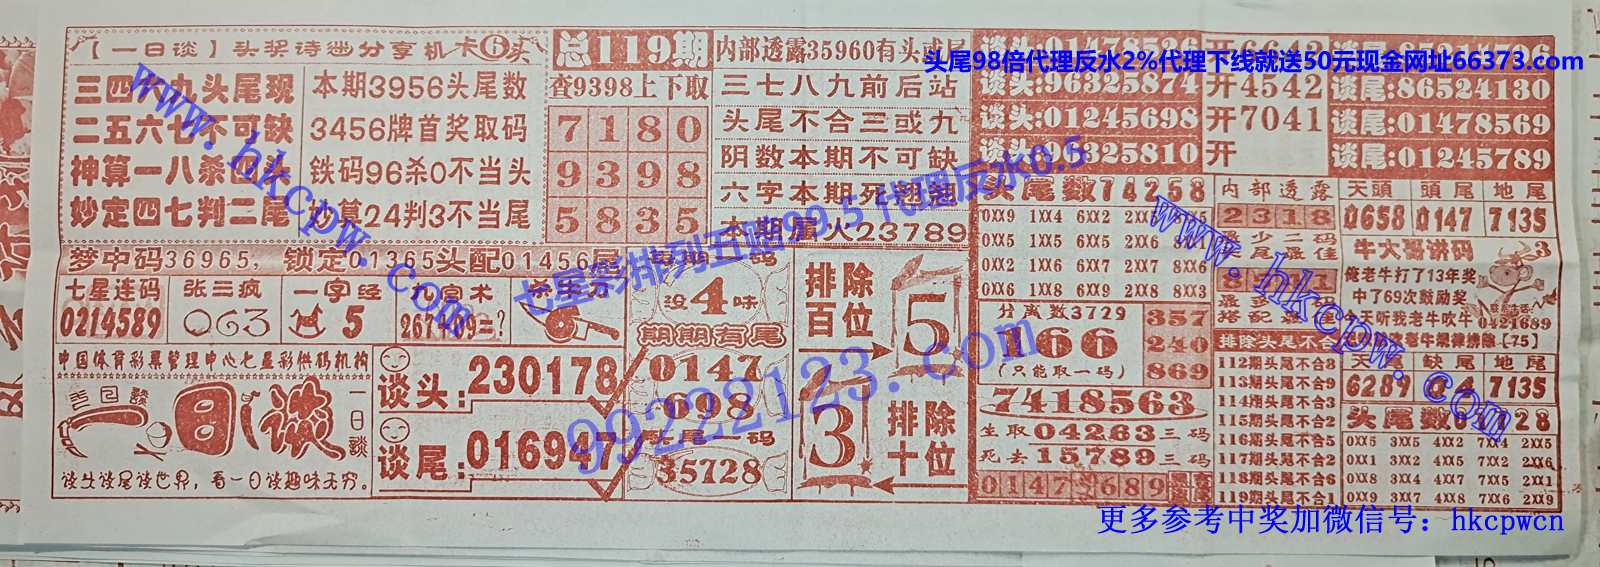 【一日谈】头奖诗谜分享机
三四六九头尾现
二五六七不可缺
神算一八杀四头
妙定四七判二尾
本期3956头尾数
3456牌首奖取码
铁码96杀0不当头
妙算24判3不当尾
梦中码36965，锁定01365头配01456尾
总119期
查9398上下取
7180
9398
5835
内部透露35960有头或尾
三七八九前后站
头尾不合三或九
阴数本期不可缺
六字本期死翘翘
本期属火23789
头尾98倍代理反水2%代理下线就送50元现金网址66373.com
谈头:96325874
谈头:01245698
谈头:96325810
开4542
开7041
开
谈尾:86524130
谈尾:01478569
谈尾:01245789
七星连码
0214589
张三疯
063
一字经
5
九宫术
没4味
期期有尾
0147
698
35728
排除
百位
5
3
排除
十位
中国体育彩票管理中心七星彩供码机构
一日谈
谈头谈尾谈世界，看一日谈趣味无穷。
谈头:230178
谈尾:016947
头尾数74258
0XX9 1XX4 6XX2
0XX5 1XX5 6XX5 2XX6
0XX2 1XX6 6XX7 2XX7
0XX6 1XX8 6XX9 2XX8 8XX3
分离数3729
166
(只能取一码)
357
240
869
7418563
生取04263三码
死去15789三码
内部透露
2318
最少二码
奖尾最佳
搭配最佳
排除头尾不合
112期头尾不合8
113期头尾不合9
114期头尾不合3
115期头尾不合5
116期头尾不合5
117期头尾不合2
118期头尾不合6
119期头尾不合1
天頭 頭尾 地尾
0658 0147 7135
牛大哥讲码
俺老牛打了13年奖
中了69次鼓励奖
今天听我老牛吹牛
0421689
天头 缺尾 地尾
6289 04 7135
0XX5 3XX5 4XX2 7XX4 2XX5
0XX6 3XX2 4XX6 7XX2 2XX6
0XX8 3XX4 4XX7 7XX5 2XX1
0XX9 3XX7 4XX8 7XX6 2XX9
www.hkcpw.com
七星彩排列五赔99.5 代理反水0.5
99222123.com
www.hkcpw.com
更多参考中奖加微信号：hkcpwcn